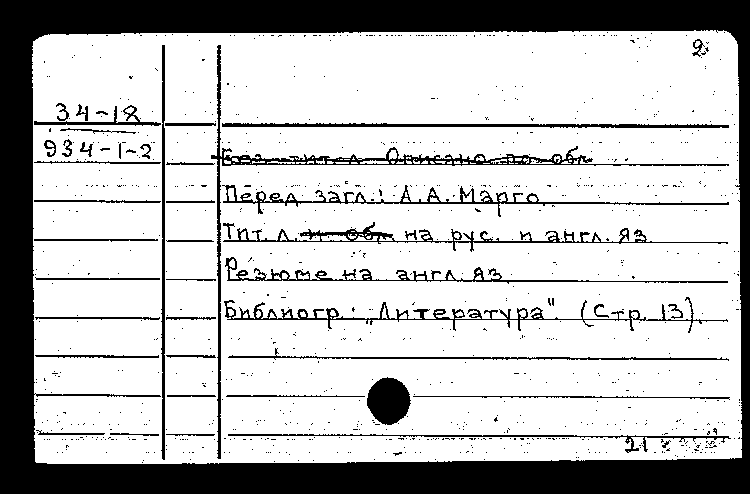 2
34-12
934-1-2
Без тит. л. Описано по обл.
Перед загл.: А.А. Марго
Тит. л. и обл. на рус. и англ. яз
Резюме на англ. яз
Библиогр.: „Литература". (Стр. 13).
21